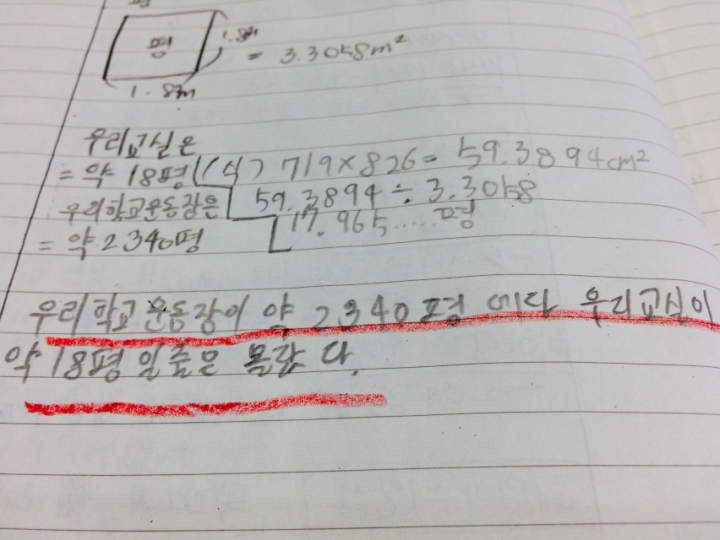 평
1.8m
= 3.3058m²
1.8m
우리교실은
= 약 18평 (식) 719×826= 59.3894cm²
우리학교운동장은 59.3894÷3.3058
= 약 2340평 17.965.....평
우리학교 운동장이 약 2340평 에다 우리교실이
약 18평 일줄은 몰랐다.